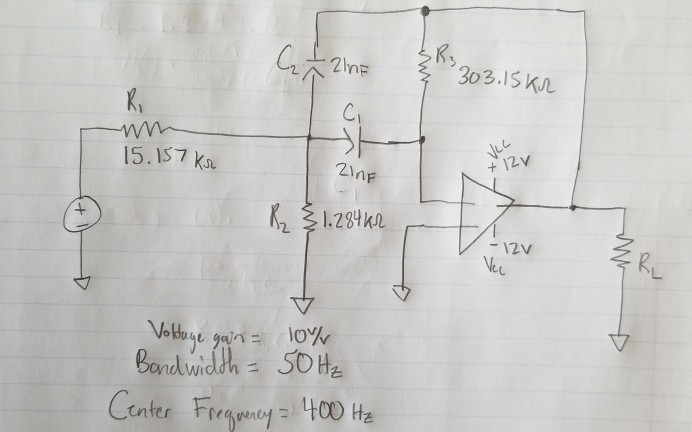 C2 21nF
R3
303.15KΩ
R1
15.157 KΩ
C1
21nF
R2 1.284KΩ
Vcc
+ 12V
- 12V
Vcc
RL
+
-
Voltage gain = 10 V/V
Bandwidth = 50 Hz
Center Frequency = 400 Hz